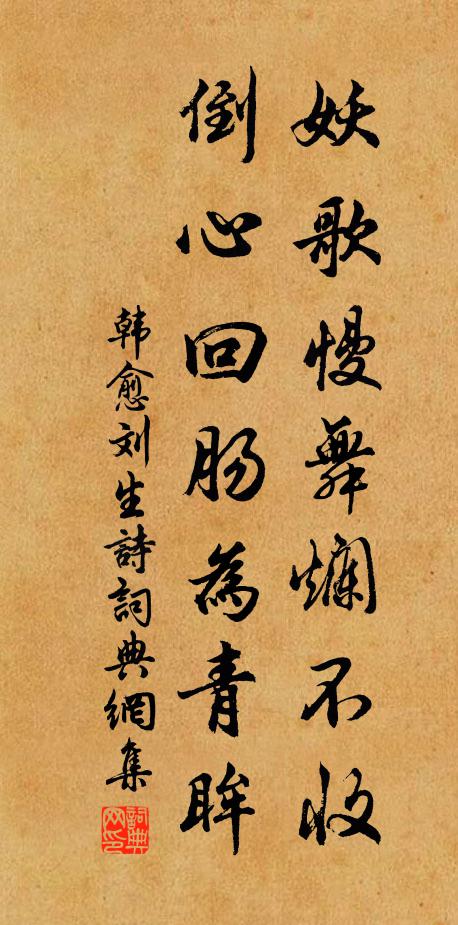 妖歌慢舞爛不收
倒心回肠為青眸
韩愈刘生詩詞典網集
詞典網印